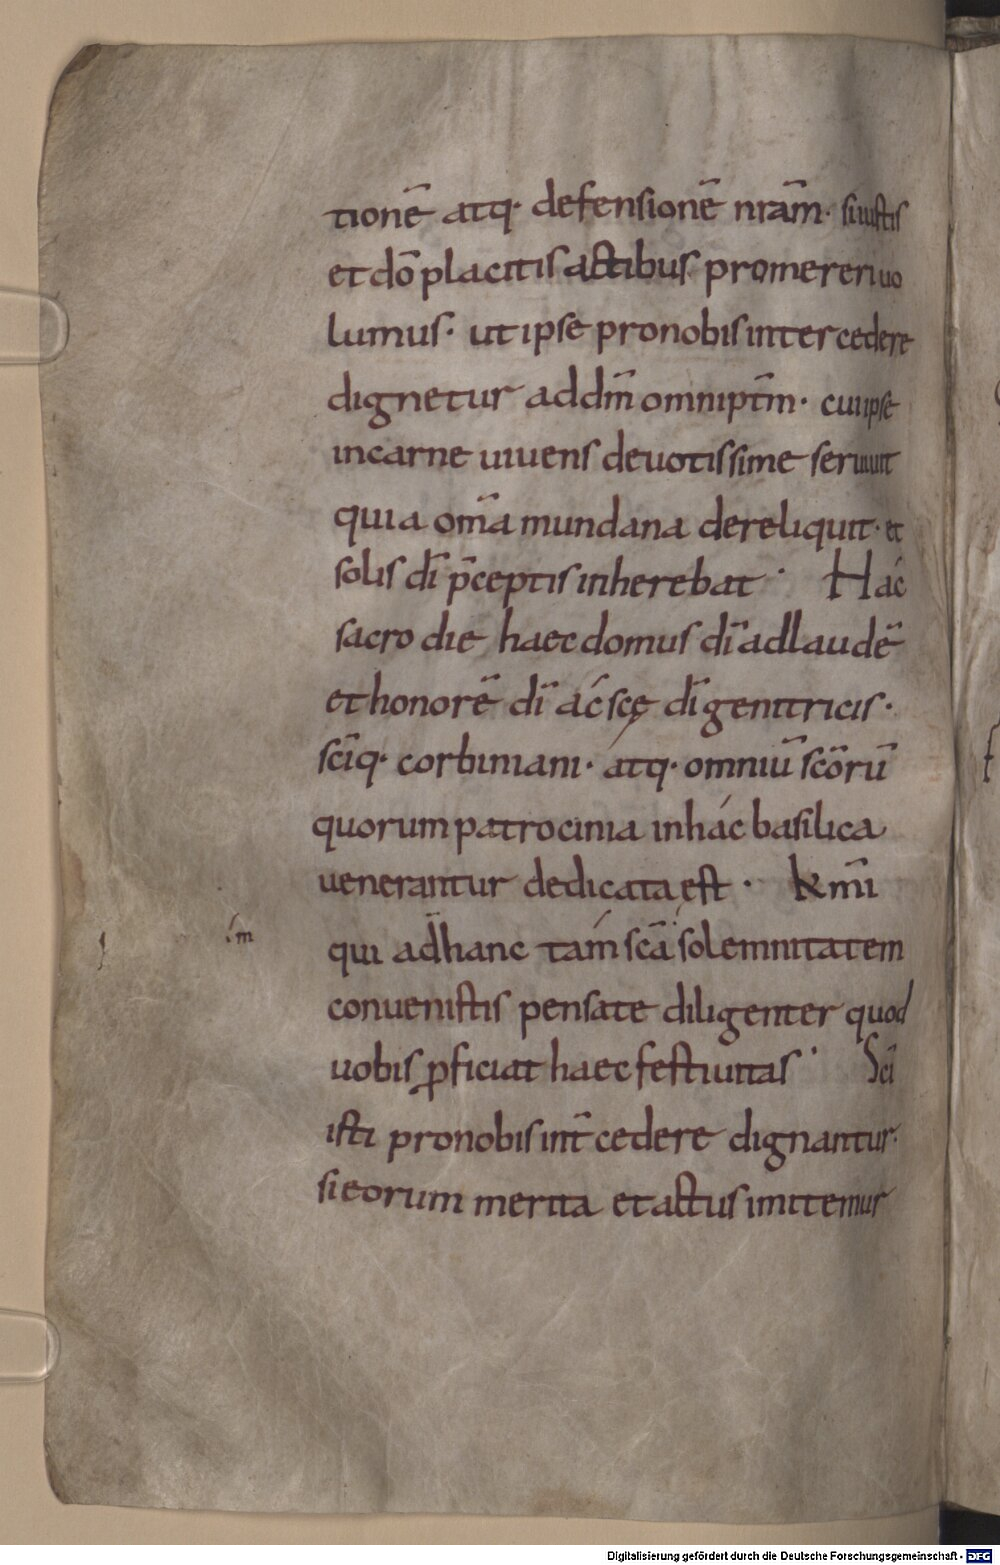 tionē atq· defensionē nrām· si iustis
et dō placitis actibus promereri uo
lumus· ut ipse pro nobis intercedere
dignetur ad dm̄ omnipt̄m· cui ipse
in carne uiuens deuotissime seruiuit
quia om̄a mundana dereliquit· et
solis dī p̄ceptis inherebat· Hác
sacro die haec domus dī ad laudē
et honorē dī ác scę dī genitricis·
scīq· corbiniani· atq· omniū scōrū
quorum patrocinia in hác basilica
uenerantur dedicata est· k̄r̄m̄i
qui ad hanc tám scā solemnitatem
·/·m
conuenistis pensate diligenter quod
uobis ꝓficiat haec festiuitas· Scī
isti pro nobis int̄cedere dignantur·
si eorum merita et actus imitemur
Digitalisierung gefördert durch die Deutsche Forschungsgemeinschaft - DFG